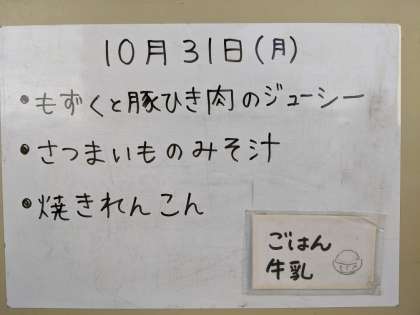 10月31日(月)
・もずくと豚ひき肉のジューシー
・さつまいものみそ汁
・焼きれんこん
ごはん
牛乳